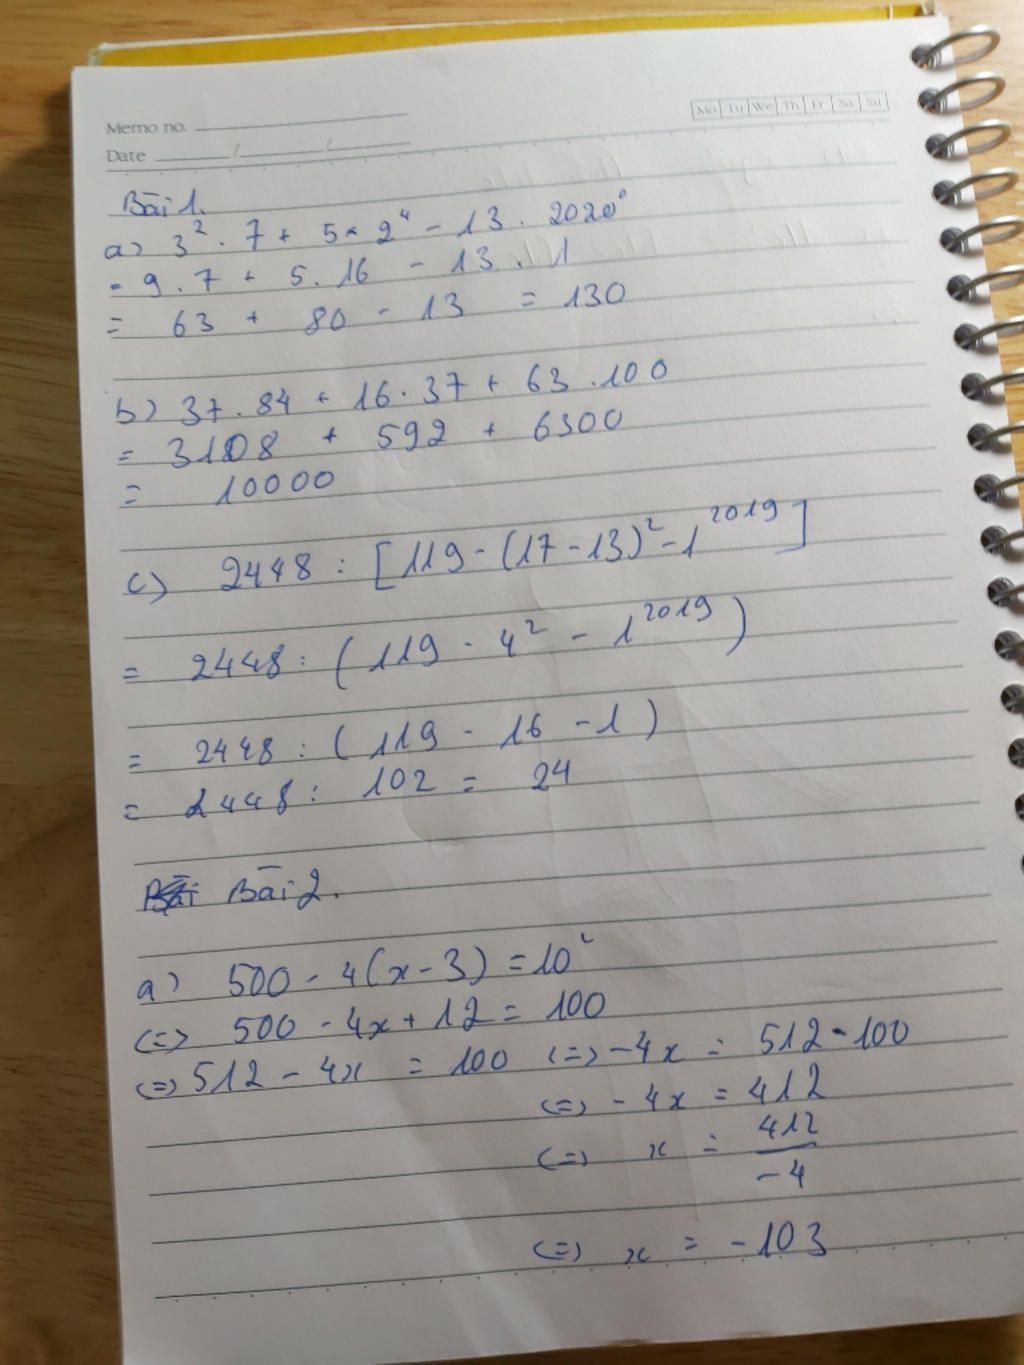 Memo no.
Mo Tu We Th Fr Sa Su
Date / /
Bài 1.
a) 3² . 7 + 5 . 2⁴ - 13 . 2020⁰
= 9 . 7 + 5 . 16 - 13 . 1
= 63 + 80 - 13 = 130
b) 37 . 84 + 16 . 37 + 63 . 100
= 3108 + 592 + 6300
= 10000
c) 2448 : [119 - (17 - 13)² - 1²⁰¹⁹]
= 2448 : (119 - 4² - 1²⁰¹⁹)
= 2448 : (119 - 16 - 1)
= 2448 : 102 = 24
Bài 2.
a) 500 - 4(x - 3) = 10²
<=> 500 - 4x + 12 = 100
<=> 512 - 4x = 100 <=> -4x = 512 - 100
<=> -4x = 412
<=> x = 412/-4
<=> x = -103